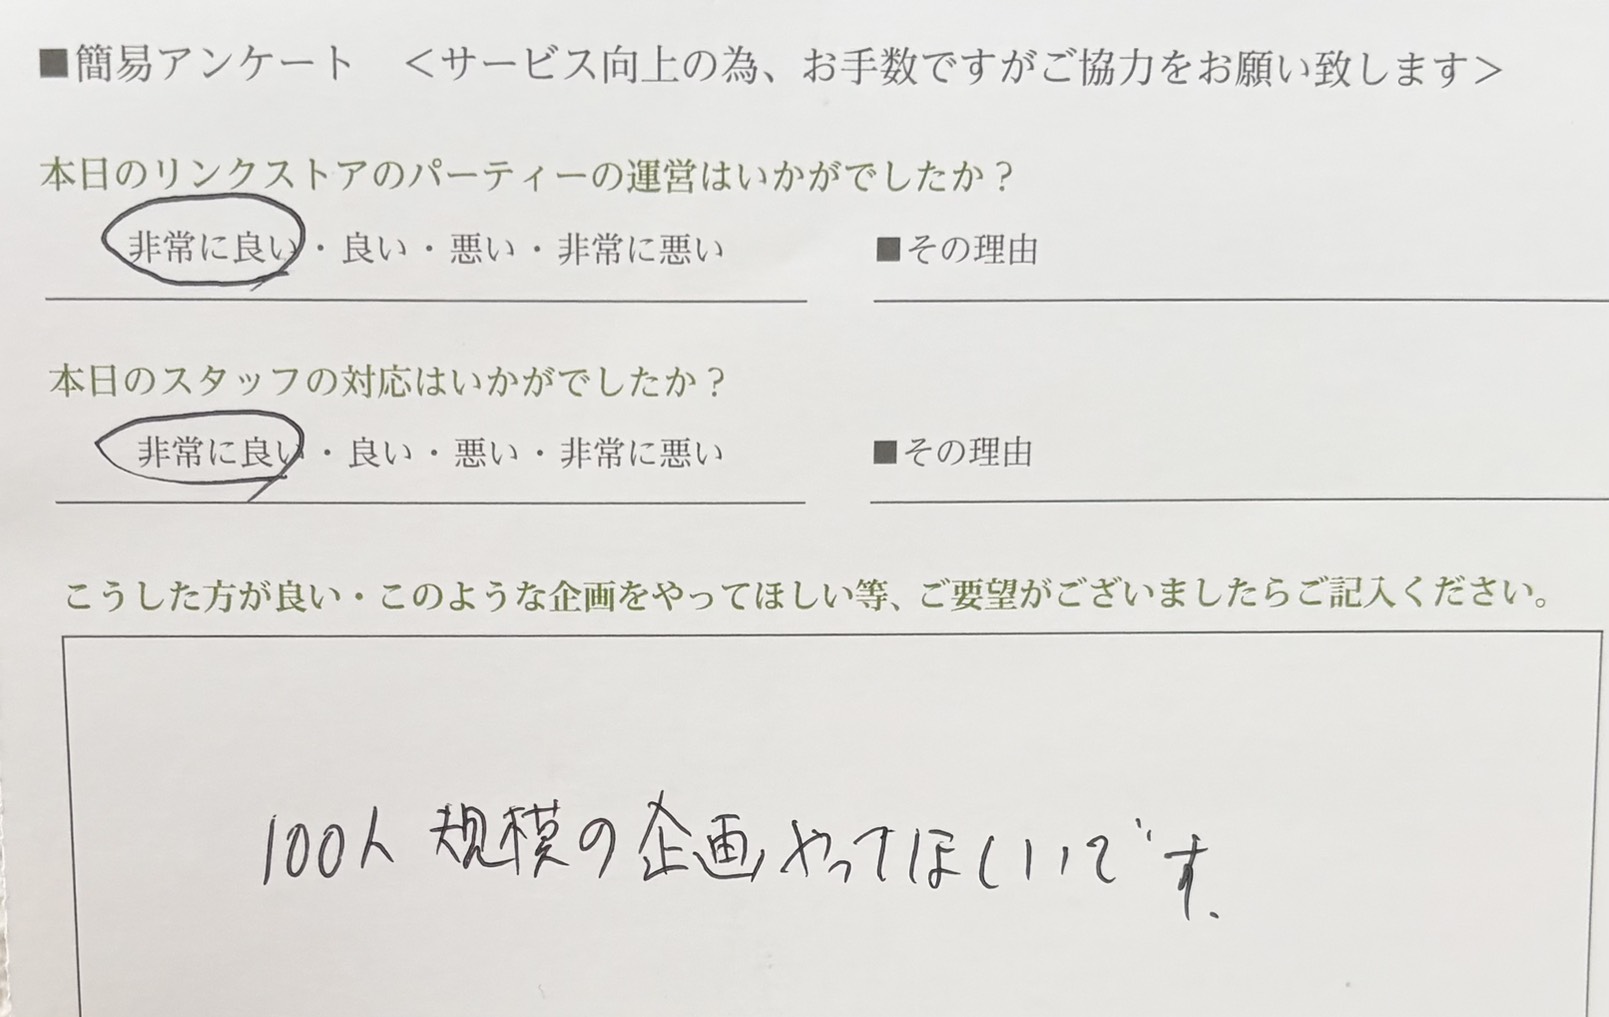 ■簡易アンケート ＜サービス向上の為、お手数ですがご協力をお願い致します＞
本日のリンクストアのパーティーの運営はいかがでしたか？
非常に良い・良い・悪い・非常に悪い ■その理由
本日のスタッフの対応はいかがでしたか？
非常に良い・良い・悪い・非常に悪い ■その理由
こうした方が良い・このような企画をやってほしい等、ご要望がございましたらご記入ください。
100人規模の企画やってほしいです.